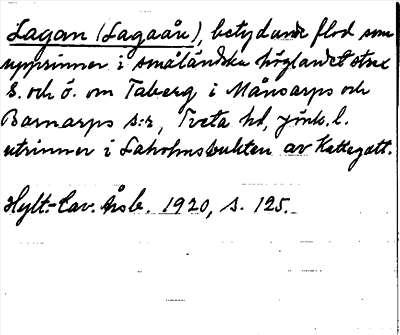 Lagan (Lagaån), betydande flod som
upprinner i småländska höglandet strax
s. och ö. om Taberg i Månsarps och
Barnarps s:r, Tveta hd, jönk. l.
utrinner i Laholmsbukten av Kattegatt.
Hylt.-Cav. Årsb. 1920, s. 125.